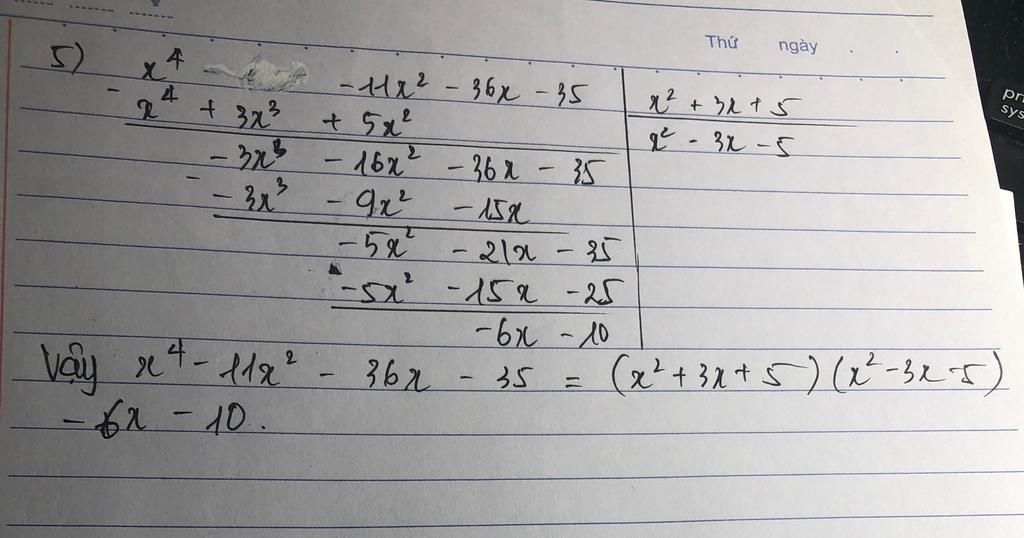 Thứ ngày . .
5) x⁴ - 11x² - 36x - 35 | x² + 3x + 5
- x⁴ + 3x³ + 5x² | x² - 3x - 5
- 3x³ - 16x² - 36x - 35
- - 3x³ - 9x² - 15x
- 5x² - 21x - 35
- - 5x² - 15x - 25
- 6x - 10
Vậy x⁴ - 11x² - 36x - 35 = (x² + 3x + 5)(x² - 3x - 5)
- 6x - 10.
pr
sys